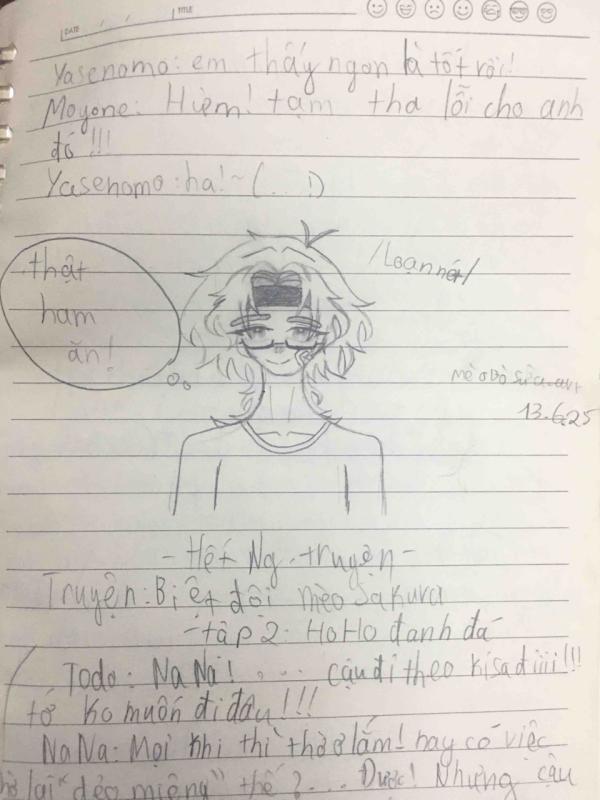 DATE
TITLE
Yasenomo: em thấy ngon là tốt rồi!
Moyone: Hừm! tạm tha lỗi cho anh
đó!!!
Yasenomo: ha!~(...!)
/Loạn nét/
...thật
ham
ăn!
Mèo Bò Sữa.art
13.6.25
- Hết Ng. truyện -
Truyện: Biệt đội mèo Sakura
- tập 2: HoHo đanh đá
Todo: NaNa!.... cậu đi theo kisa điiii!!!
tớ ko muốn đi đâu!!!
NaNa: Mọi khi thì thờ ơ lắm! nay có việc
lại "dẻo miệng" thế?.... Được! Nhưng cậu